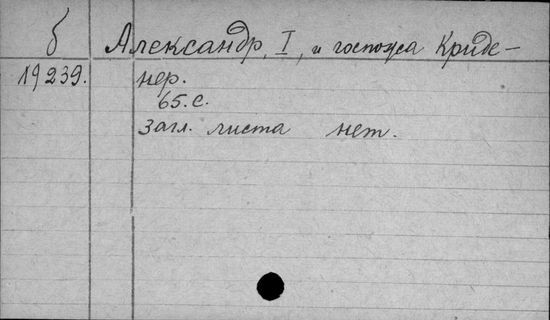 б
Александр, I, и госпожа Криде-
19239.
нер.
65. с.
загл. листа нет.